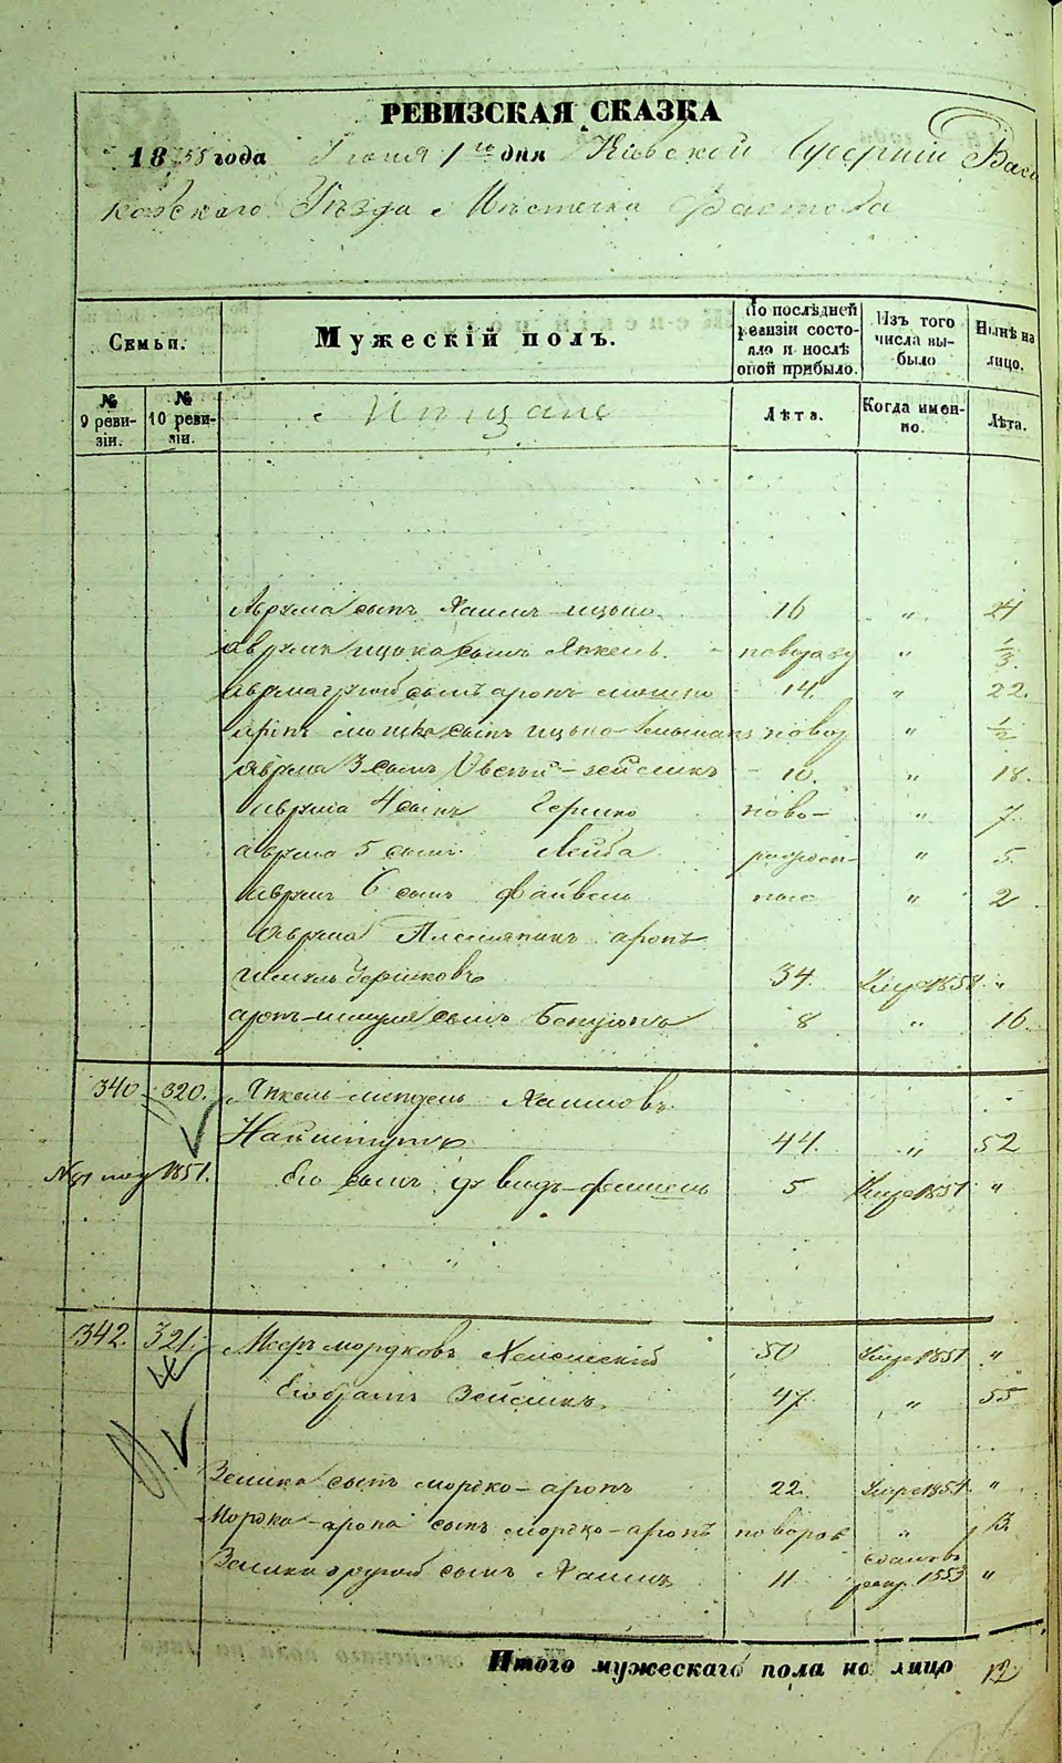 РЕВИЗСКАЯ СКАЗКА
1858 года Июня 1го дня Кіевской Губерніи Васи
ковскаго Уѣзда Мѣстечка Фастова
Семьи.
Мужескій полъ.
По послѣдней ревизіи состояло и послѣ оной прибыло.
Изъ того числа выбыло
Нынѣ на лицо.
№ 9 ревизіи.
№ 10 ревизіи.
Мѣщане
Лѣта.
Когда именно.
Лѣта.
Аврума сынъ Хаимъ-ицько 16 " 24
ицька сынъ Янкель " 1/3
другой сынъ аронъ мошко 14. " 22.
мошка сынъ ицько- " 1/2
Аврума 3 сынъ Овсей-зейликъ 10. " 18.
Аврума 4 сынъ Гершко ново- " 7
Аврума 5 сынъ Лейба рожден- " 5
6 сынъ файвель ные " 2
Аврума Племяникъ аронъ
Шмуль Гершковъ 34. "
аронъ-шмуля сынъ Бенціонъ 8 " 16.
340 320. Янкель-мендель Хаимовъ
44. " 52
1851. Его сынъ 5 умре 1851 "
342. 321. Мееръ мордковъ 50 умре 1851 "
Его братъ Зейликъ. 47. " 55
Зейлика сынъ мордко-аронъ 22. умре 1854. "
Мордка-арона сынъ "
Зейлика другой сынъ Хаимъ 11 1853 "
Итого мужескаго пола на лицо 12